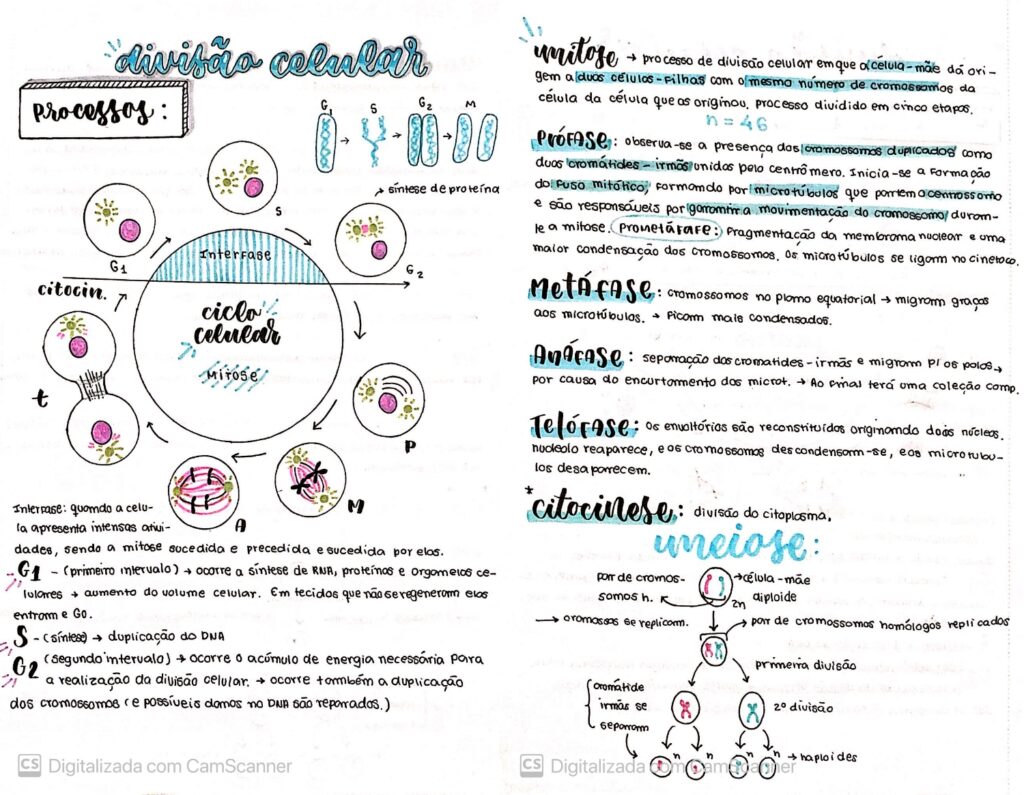 divisão celular
Processos:
G1 S G2 M
síntese de proteína
S
G1
G2
Interfase
citocin.
ciclo
celular
Mitose
t
P
M
A
Interfase: quando a celu-
la apresenta intensas ativi-
dades, sendo a mitose sucedida e precedida e sucedida por elas.
G1 - (primeiro intervalo) → ocorre a síntese de RNA, proteínas e organelos ce-
lulares → aumento do volume celular. Em tecidos que não se regeneram elas
entram e G0.
S - (síntese) → duplicação do DNA
G2 (segundo intervalo) → ocorre o acúmulo de energia necessária para
a realização da divisão celular. → ocorre também a duplicação
dos cromossomos (e possíveis danos no DNA são reparados.)
CS Digitalizada com CamScanner
mitose → processo de divisão celular em que a célula-mãe dá ori-
gem a duas células-filhas com o mesmo número de cromossomos da
célula da célula que as originou, processo dividido em cinco etapas.
n = 46
Prófase: observa-se a presença dos cromossomos duplicados como
duas cromátides-irmãs unidos pelo centrômero. Inicia-se a formação
do fuso mitótico, formando por microtúbulos que partem o centrossomo
e são responsáveis por garantir a movimentação do cromossomo, duran-
te a mitose. Prometáfase: fragmentação da membrana nuclear e uma
maior condensação dos cromossomos. Os microtúbulos se ligam no cinetoco.
Metáfase: cromossomos no plano equatorial → migram graças
aos microtúbulos. → Ficam mais condensados.
Anáfase: separação das cromatides-irmãs e migram p/ os polos→
por causa do encurtamento dos microt. → Ao final terá uma coleção comp.
Telófase: Os envoltórios são reconstituídos originando dois núcleos,
nucléolo reaparece, e os cromossomos descondensam-se, e os microtubu-
los desaparecem.
*citocinese: divisão do citoplasma.
meiose:
par de cromos-
somos h.
→ célula-mãe
diploide
2n
→ cromossos se replicam.
par de cromossomos homólogos replicados
primeira divisão
cromátide
irmãs se
separam
2º divisão
n n n n → haploides
CS Digitalizada com CamScanner